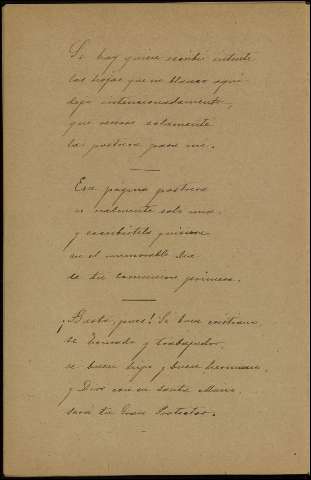 Si hay quien escribir intente
las hojas que en blanco aquí
dejo intencionadamente,
que reserve solamente
las postreras para mí.
Esa página postrera
es realmente solo mía,
y escribírtela quisiera
en el memorable día
de tu comunión primera.
¡Basta, pues! Sé buen cristiano,
sé honrado y trabajador,
sé buen hijo y buen hermano,
y Dios con su santa Mano
será tu Gran Protector.